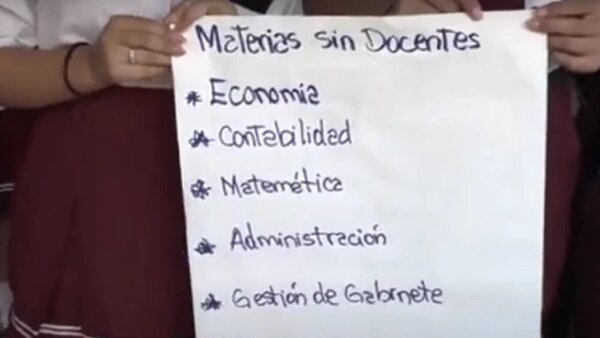 Materias sin Docentes
* Economía
* Contabilidad
* Matemética
* Administración
* Gestión de Gabinete